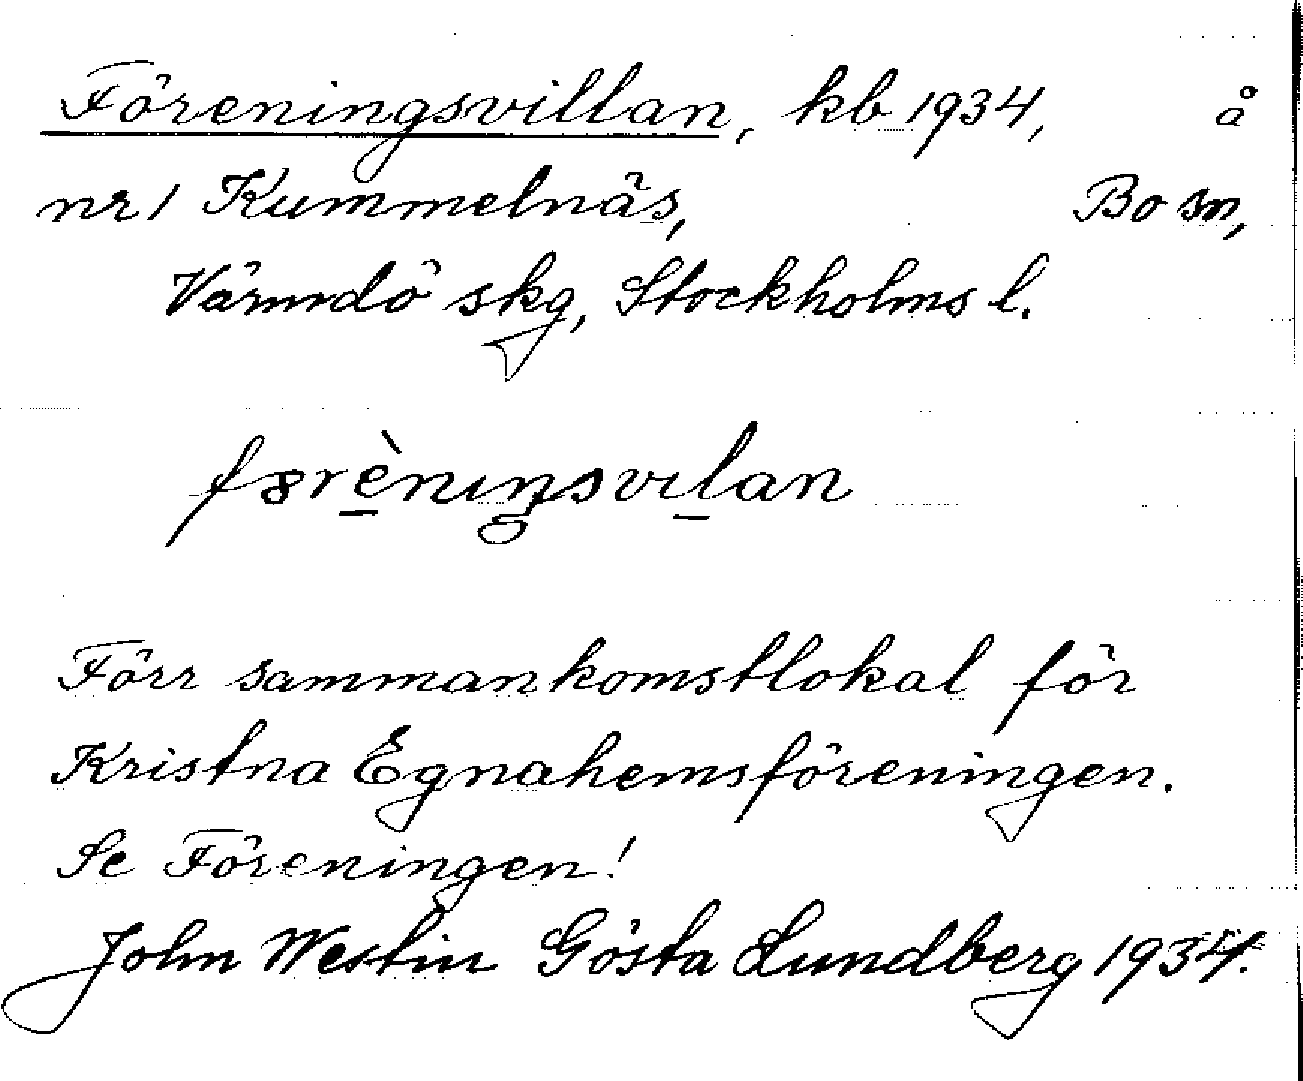 Föreningsvillan, kb 1934, å
nr 1 Kummelnäs, Bo sn,
Värmdö skg, Stockholms l.
fɵrèniŋsvilan
Förr sammankomstlokal för
Kristna Egnahemsföreningen.
Se Föreningen!
John Westin Gösta Lundberg 1934.